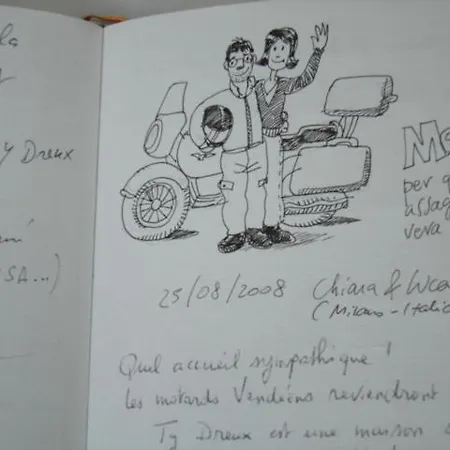 la
Y Dreux
SA...)
Mo
per q
assag
vera
25/08/2008 Chiara & Luca
(Milano - Italia
Quel accueil sympathique !
Les motards Vendéens reviendront
Ty Dreux est une maison